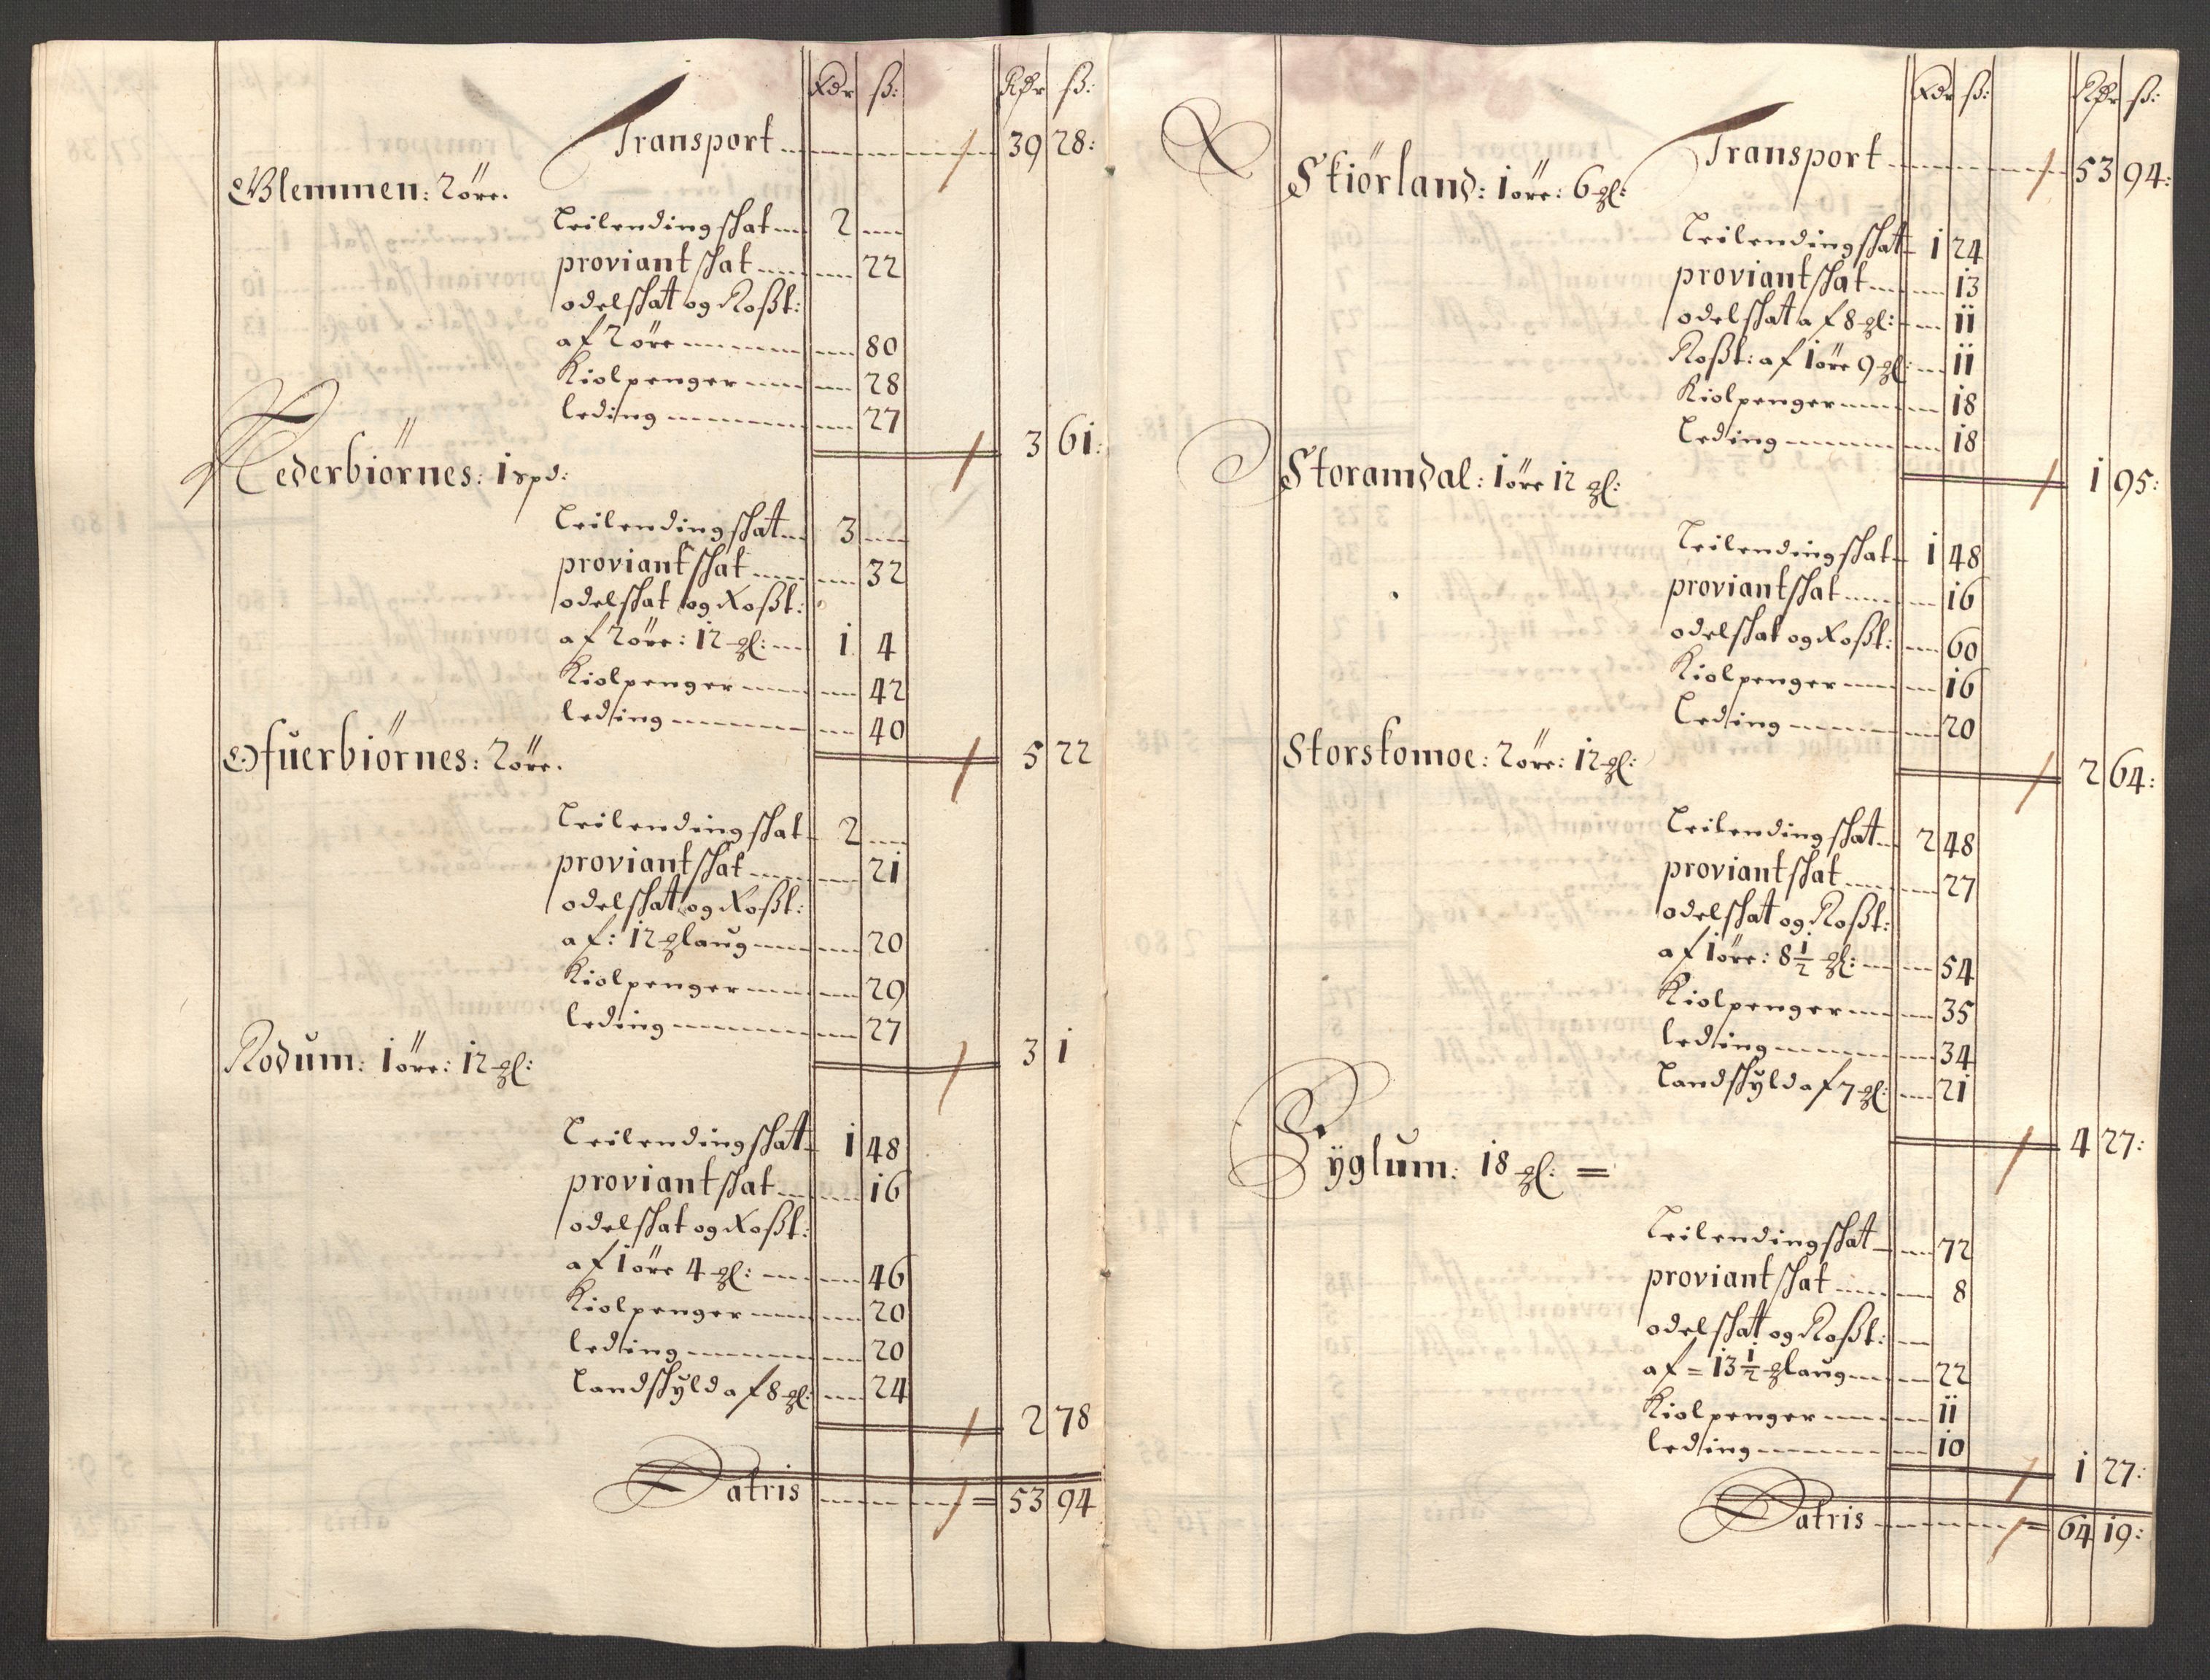 Rdr ß: Rdr ß:
Transport 39 28:
Glemmen: 2 öre.
Leilending skat 2
proviant skat 22
odelskat og Roßt:
af 2 öre 80
Kiolpenger 28
leding 27
3 61:
Nederbiörnes: 1 spd:
Leilending skat 3
proviant skat 32
odelskat og Roßt:
af 2 öre: 12 gl: 1 4
Kiolpenger 42
leding 40
5 22
Ofuerbiörnes: 2 öre.
Leilending skat 2
proviant skat 21
odelskat og Roßt:
af: 12 glaug 20
Kiolpenger 29
leding 27
3 1
Rodum: 1 öre: 12 gl:
Leilending skat 1 48
proviant skat 16
odelskat og Roßt:
af 1 öre 4 gl: 46
Kiolpenger 20
leding 20
Landskyld af 8 gl: 24
2 78
Latris 53 94
Rdr ß: Rdr ß:
Transport 53 94:
Skiörland: 1 öre: 6 gl:
Leilending skat 1 24
proviant skat 13
odelskat af 8 gl: 11
Roßt: af 1 öre 9 gl: 11
Kiolpenger 18
Leding 18
1 95:
Storamdal: 1 öre 12 gl:
Leilending skat 1 48
proviant skat 16
odelskat og Roßt: 60
Kiolpenger 16
Leding 20
2 64:
Storskomoe: 2 öre: 12 gl:
Leilending skat 2 48
proviant skat 27
odelskat og Roßt:
af 1 öre: 8 1/2 gl: 54
Kiolpenger 35
leding 34
Landskyld af 7 gl: 21
4 27:
Fÿglum: 18 gl: =
Leilending skat 72
proviant skat 8
odelskat og Roßt:
af = 13 1/2 glaug 22
Kiolpenger 11
leding 10
1 27:
Latris = 64 19: